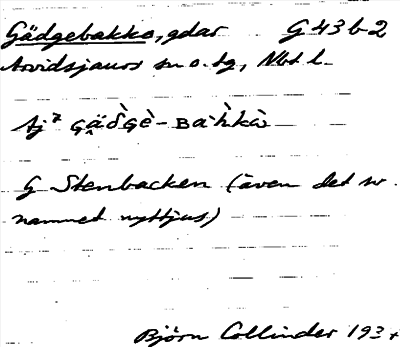 Gädgebakko, gdar G 43 b-2
Arvidsjaurs sn o. tg, Nbt l.
Aj⁷ Gä̬δ̀Gè-Bàh̀kò
G Stenbacken (även det sv.
namnet nyttjas)
Björn Collinder 193